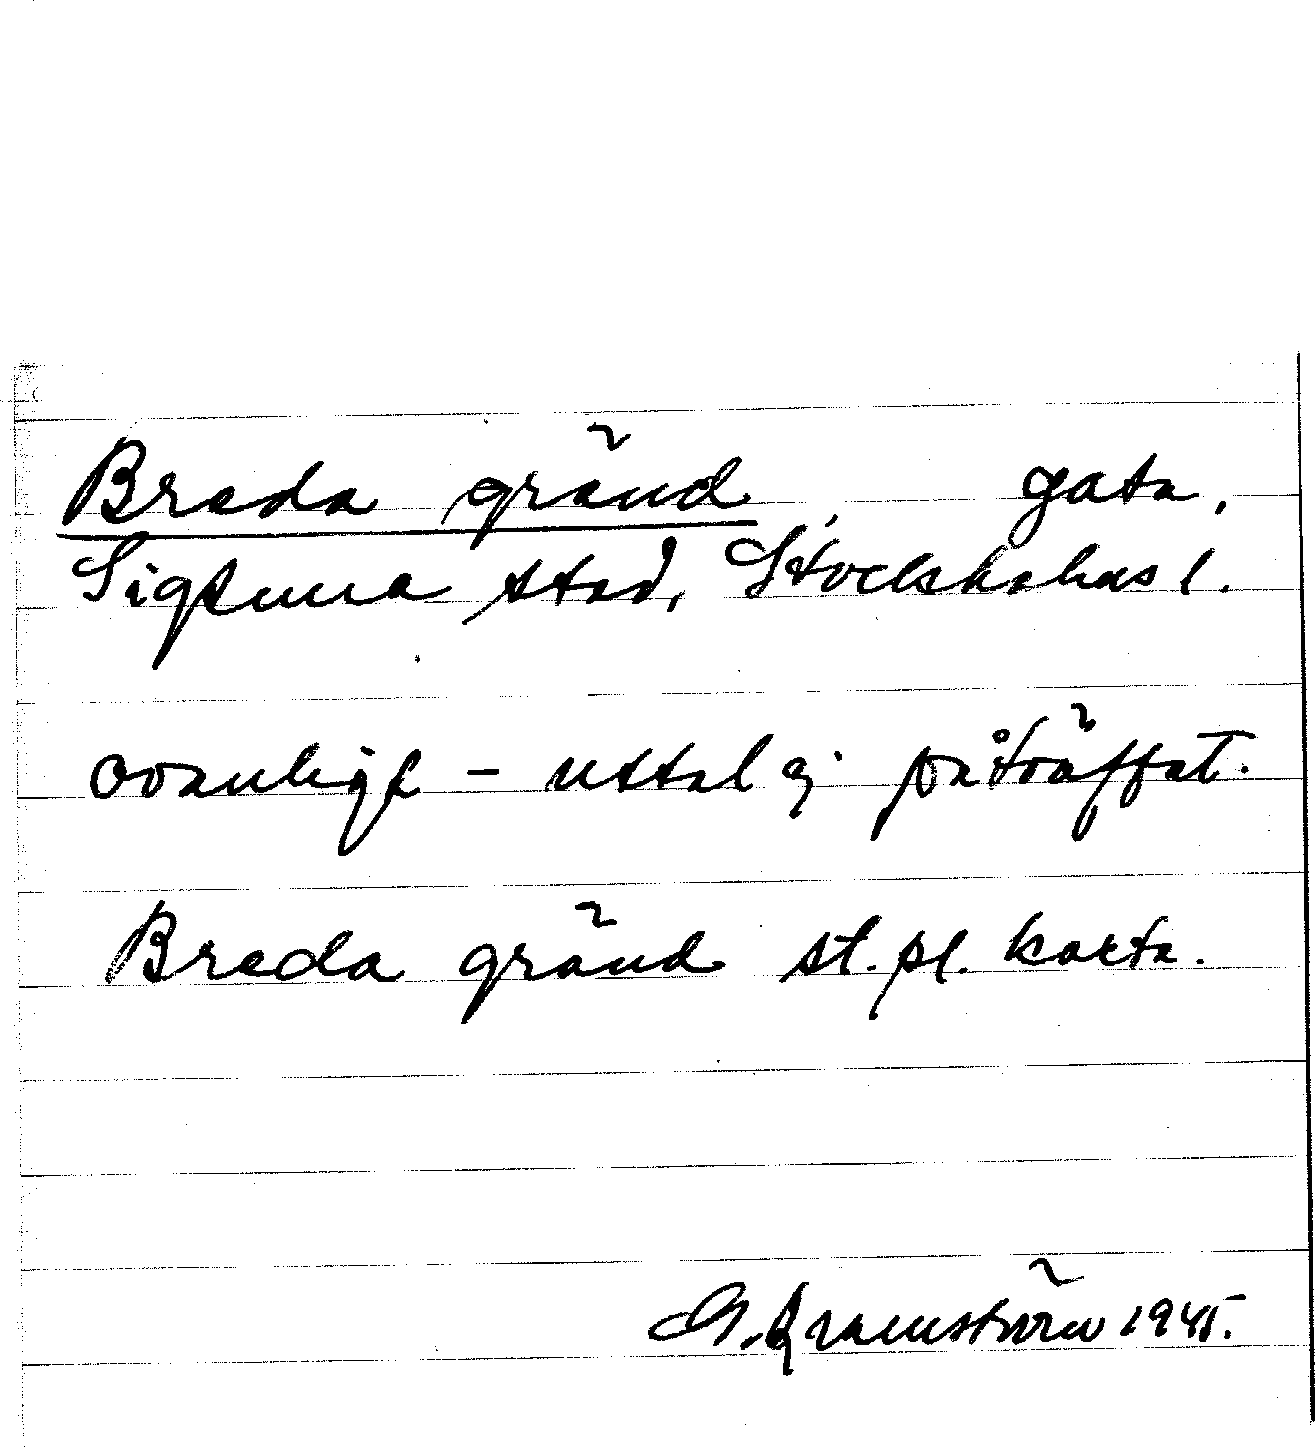 Breda gränd, gata,
Sigtuna stad, Stockholms l.
ovanligt - uttal ej påträffat.
Breda gränd st.pl. karta.
G. 1945.